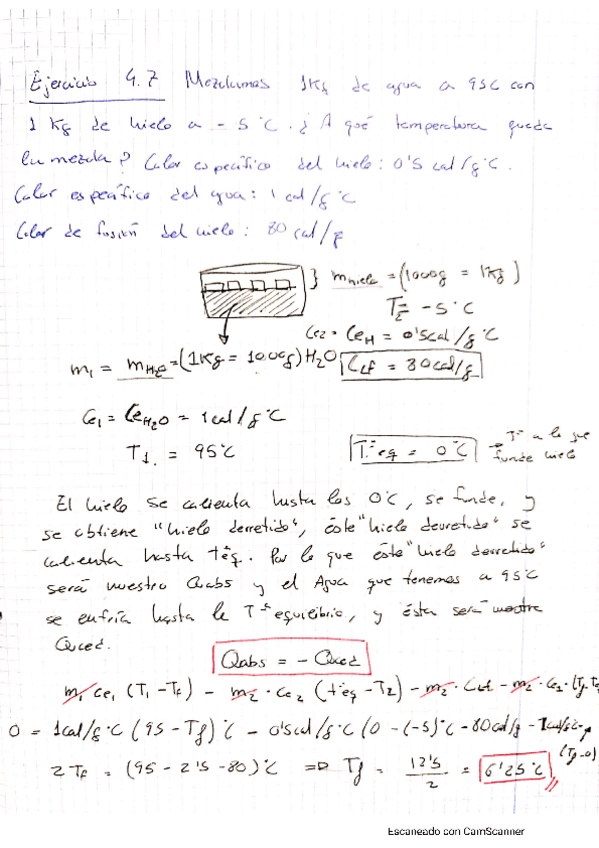 Ejercicio 4.7 Mezclamos 1Kg de agua a 95C con
1 Kg de hielo a -5°C. ¿A qué temperatura queda
la mezcla? Calor específico del hielo: 0'5 cal/g°C.
Calor específico del agua: 1 cal/g°C
Calor de fusión del hielo: 80 cal/g
} m hielo = (1000g = 1Kg)
T2 = -5°C
Ce2 = CeH = 0'5cal/g°C
m1 = mH2O = (1Kg = 1000g) H2O CLf = 80cal/g
Ce1 = CeH2O = 1cal/g°C
T1 = 95°C
Tªeq = 0°C → Tª a la que
funde hielo
El hielo se calienta hasta los 0°C, se funde, y
se obtiene "hielo derretido", éste "hielo derretido" se
calienta hasta tªeq. Por lo que éste "hielo derretido"
será nuestro Qabs y el Agua que tenemos a 95°C
se enfría hasta la Tª equilibrio, y ésta será nuestro
Qced.
Qabs = - Qced
m1 ce1 (T1 - Tf) - m2 · ce2 (teq - T2) - m2 · CLf - m2 · ce1 · (Tf - T
0 = 1cal/g°C (95 - Tf)°C - 0'5cal/g°C (0 - (-5)°C - 80cal/g - 1cal/g°C
(Tf-0)
2 Tf = (95 - 2'5 - 80)°C => Tf = 12'5/2 = 6'25°C
Escaneado con CamScanner